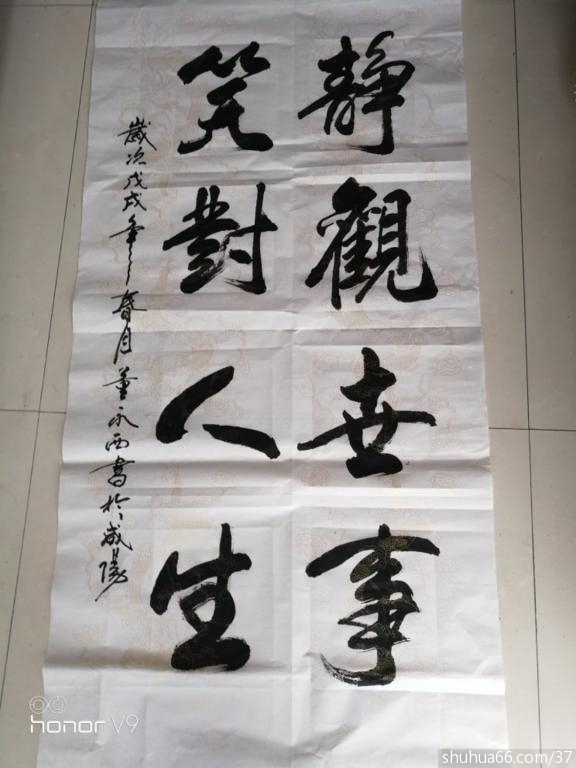 靜觀世事
笑對人生
歲次戊戌年之春月董永西書於咸陽
honor V9
shuhua66.com/37